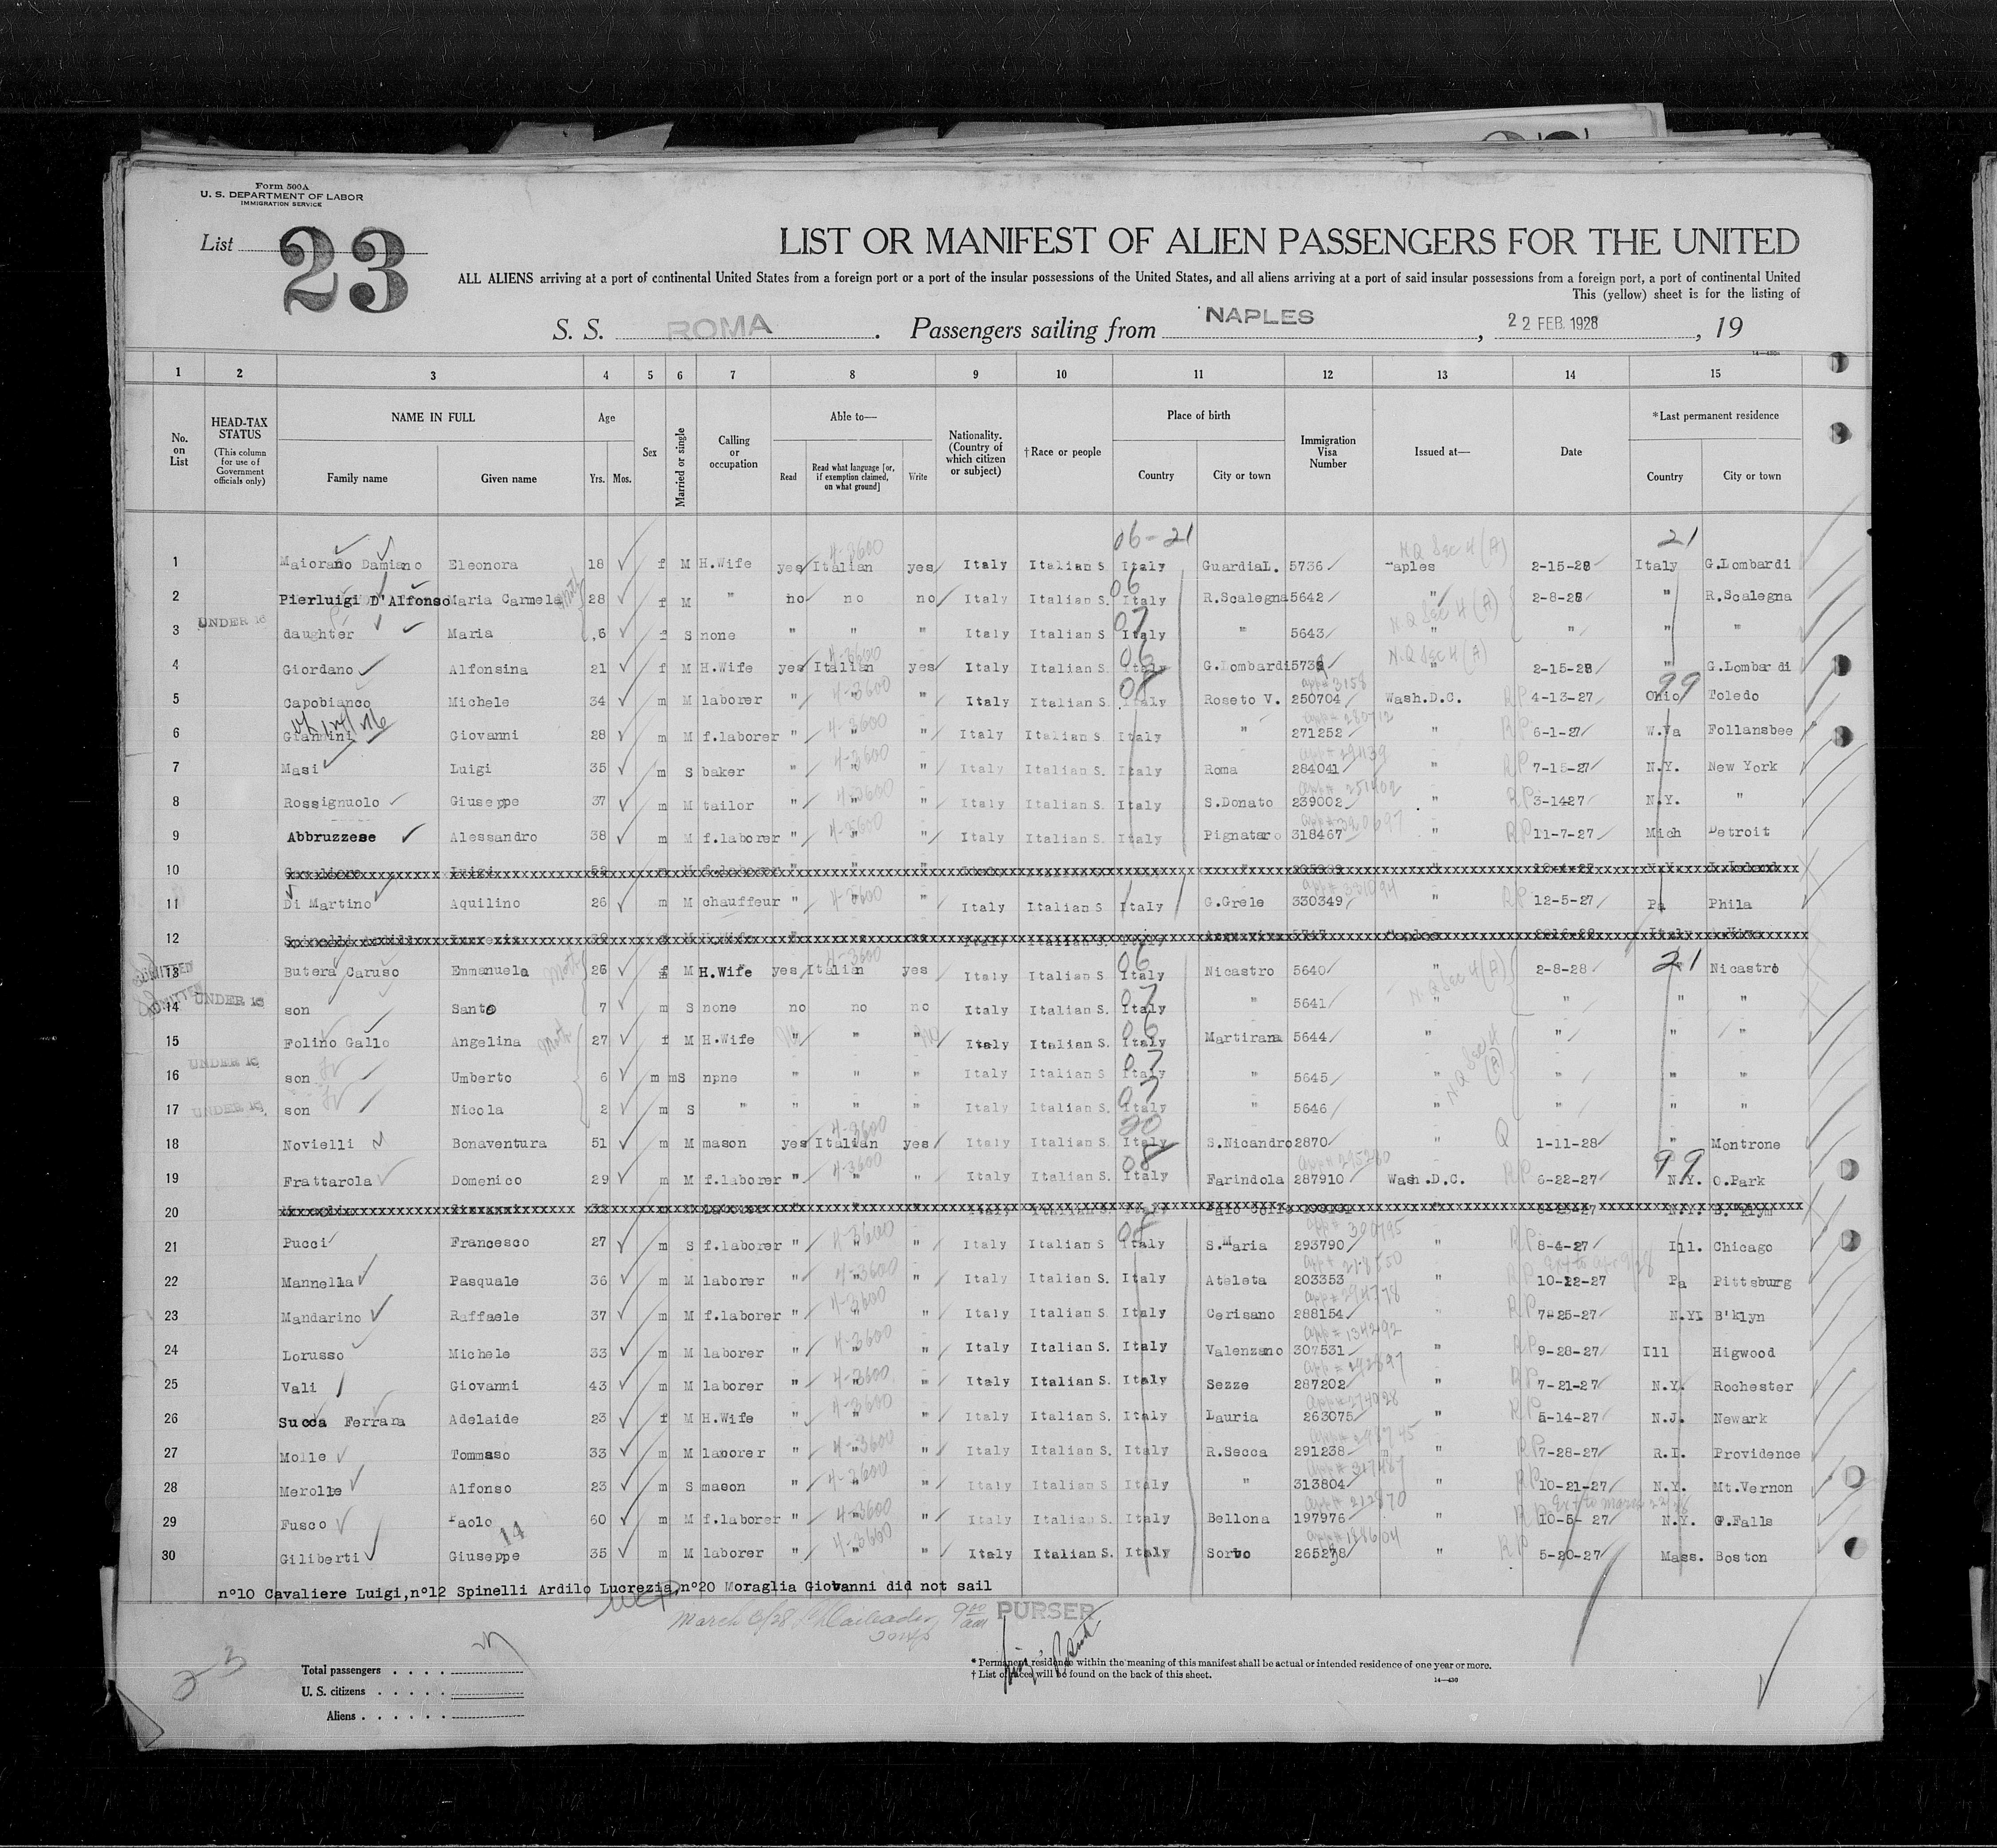 Form 500A
U. S. DEPARTMENT OF LABOR
IMMIGRATION SERVICE
List 23
LIST OR MANIFEST OF ALIEN PASSENGERS FOR THE UNITED
ALL ALIENS arriving at a port of continental United States from a foreign port or a port of the insular possessions of the United States, and all aliens arriving at a port of said insular possessions from a foreign port, a port of continental United
This (yellow) sheet is for the listing of
S. S. ROMA. Passengers sailing from NAPLES, 22 FEB. 1928, 19
14-430
1 2 3 4 5 6 7 8 9 10 11 12 13 14 15
No. on List HEAD-TAX STATUS (This column for use of Government officials only) NAME IN FULL Family name Given name Age Yrs. Mos. Sex Married or single Calling or occupation Able to— Read Read what language [or, if exemption claimed, on what ground] Write Nationality. (Country of which citizen or subject) †Race or people Place of birth Country City or town Immigration Visa Number Issued at— Date *Last permanent residence Country City or town
06-21 21
4-3600 N.Q Sec 4 (A)
1 Maiorano Damiano Eleonora 18 f M H.Wife yes Italian yes Italy Italian S. Italy GuardiaL. 5736 Naples 2-15-28 Italy G.Lombardi
2 Pierluigi D'Alfonso Maria Carmela 28 f M " no no no Italy Italian S. 06 Italy R.Scalegna 5642 " 2-8-28 " R.Scalegna
UNDER 16 3 daughter Maria 6 f S none " " " Italy Italian S 07 Italy " 5643 N.Q Sec 4 (A) " " " "
4 Giordano Alfonsina 21 f M H.Wife yes 4-3600 Italian yes Italy Italian S. 06 Italy G.Lombardi N.Q Sec 4 (A) " 2-15-28 " G.Lombardi
5 Capobianco Michele 34 m M laborer " 4-3600 " " Italy Italian S. Italy Roseto V. app# 3158 250704 Wash.D.C. RP 4-13-27 99 Ohio Toledo
6 Giannini Giovanni 28 m M f.laborer " 4-3600 " " Italy Italian S. Italy " 271252 " RP 6-1-27 W.Va Follansbee
7 Masi Luigi 35 m S baker " 4-3600 " " Italy Italian S. Italy Roma 284041 " RP 7-15-27 N.Y. New York
8 Rossignuolo Giuseppe 37 m M tailor " 4-3600 " " Italy Italian S. Italy S.Donato 239002 " RP 3-1427 N.Y. "
9 Abbruzzese Alessandro 38 m M f.laborer " 4-3600 " " Italy Italian S. Italy Pignataro 318467 " RP 11-7-27 Mich Detroit
10
11 Di Martino Aquilino 26 m M chauffeur " 4-3600 " " Italy Italian S Italy G.Grele app# 331094 330349 " RP 12-5-27 Pa Phila
12
ADMITTED 13 Butera Caruso Emmanuela 26 f M H.Wife yes 4-3600 Italian yes Italy Italian S. 06 Italy Nicastro 5640 " 2-8-28 21 " Nicastro
ADMITTED UNDER 16 14 son Santo 7 m S none no no no Italy Italian S. 07 Italy " 5641 N.Q Sec 4 (A) " " " "
15 Folino Gallo Angelina 27 f M H.Wife " " Italy Italian S. 06 Italy Martirana 5644 " " " "
UNDER 16 16 son Umberto 6 m mS npne " " " Italy Italian S 07 Italy " 5645 N.Q Sec 4 (A) " " " "
UNDER 16 17 son Nicola 2 m S " " " " Italy Italian S. 07 Italy " 5646 " " " "
18 Novielli Bonaventura 51 m M mason yes 4-3600 Italian yes Italy Italian S. 20 Italy S.Nicandro 2870 " Q 1-11-28 " Montrone
19 Frattarola Domenico 29 m M f.laborer " 4-3600 " " Italy Italian S. Italy Farindola app# 295280 287910 Wash.D.C. RP 6-22-27 99 N.Y. O.Park
20
21 Pucci Francesco 27 m S f.laborer " 4-3600 " " Italy Italian S Italy S.Maria app# 300795 293790 " RP 8-4-27 Ill. Chicago
22 Mannella Pasquale 36 m M laborer " 4-3600 " " Italy Italian S. Italy Ateleta 203353 " RP 10-12-27 Pa Pittsburg
23 Mandarino Raffaele 37 m M f.laborer " 4-3600 " Italy Italian S. Italy Cerisano app# 294778 288154 " RP 7-25-27 N.Y. B'klyn
24 Lorusso Michele 33 m M laborer " 4-3600 " " Italy Italian S. Italy Valenzano app# 134292 307531 " RP 9-28-27 Ill Higwood
25 Vali Giovanni 43 m M laborer " 4-3600 " " Italy Italian S. Italy Sezze app# 292897 287202 " RP 7-21-27 N.Y. Rochester
26 Succa Ferrara Adelaide 23 f M H.Wife " 4-3600 " " Italy Italian S. Italy Lauria app# 274028 263075 " RP 5-14-27 N.J. Newark
27 Molle Tommaso 33 m M laborer " 4-3600 " " Italy Italian S. Italy R.Secca app# 298745 291238 " RP 7-28-27 R.I. Providence
28 Merolle Alfonso 23 m S mason " 4-3600 " " Italy Italian S. Italy " app# 317487 313804 " RP 10-21-27 N.Y. Mt.Vernon
29 Fusco Paolo 60 m M f.laborer " 4-3600 " " Italy Italian S. Italy Bellona app# 212870 197976 " RP 10-5-27 N.Y. G.Falls
30 Giliberti Giuseppe 14 35 m M laborer " 4-3600 " " Italy Italian S. Italy Sorbo app# 188604 265278 " RP 5-20-27 Mass. Boston
n°10 Cavaliere Luigi,n°12 Spinelli Ardilo Lucrezia,n°20 Moraglia Giovanni did not sail
March 6/28 9 00 am PURSER
23
Total passengers
U. S. citizens
Aliens
* Permanent residence within the meaning of this manifest shall be actual or intended residence of one year or more.
† List of races will be found on the back of this sheet.
14-430